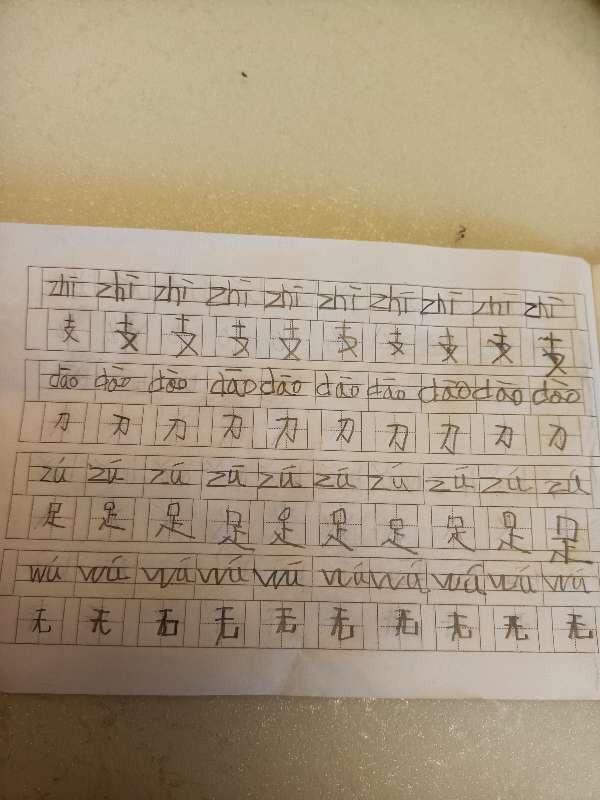 zhī zhī zhī zhī zhī zhī zhī zhī zhī zhī
支 支 支 支 支 支 支 支 支 支
dāo dāo dāo dāo dāo dāo dāo dāo dāo dāo
刀 刀 刀 刀 刀 刀 刀 刀 刀 刀
zú zú zú zú zú zú zú zú zú zú
足 足 足 足 足 足 足 足 足 足
wú wú wú wú wú wú wú wú wú wú
无 无 无 无 无 无 无 无 无 无